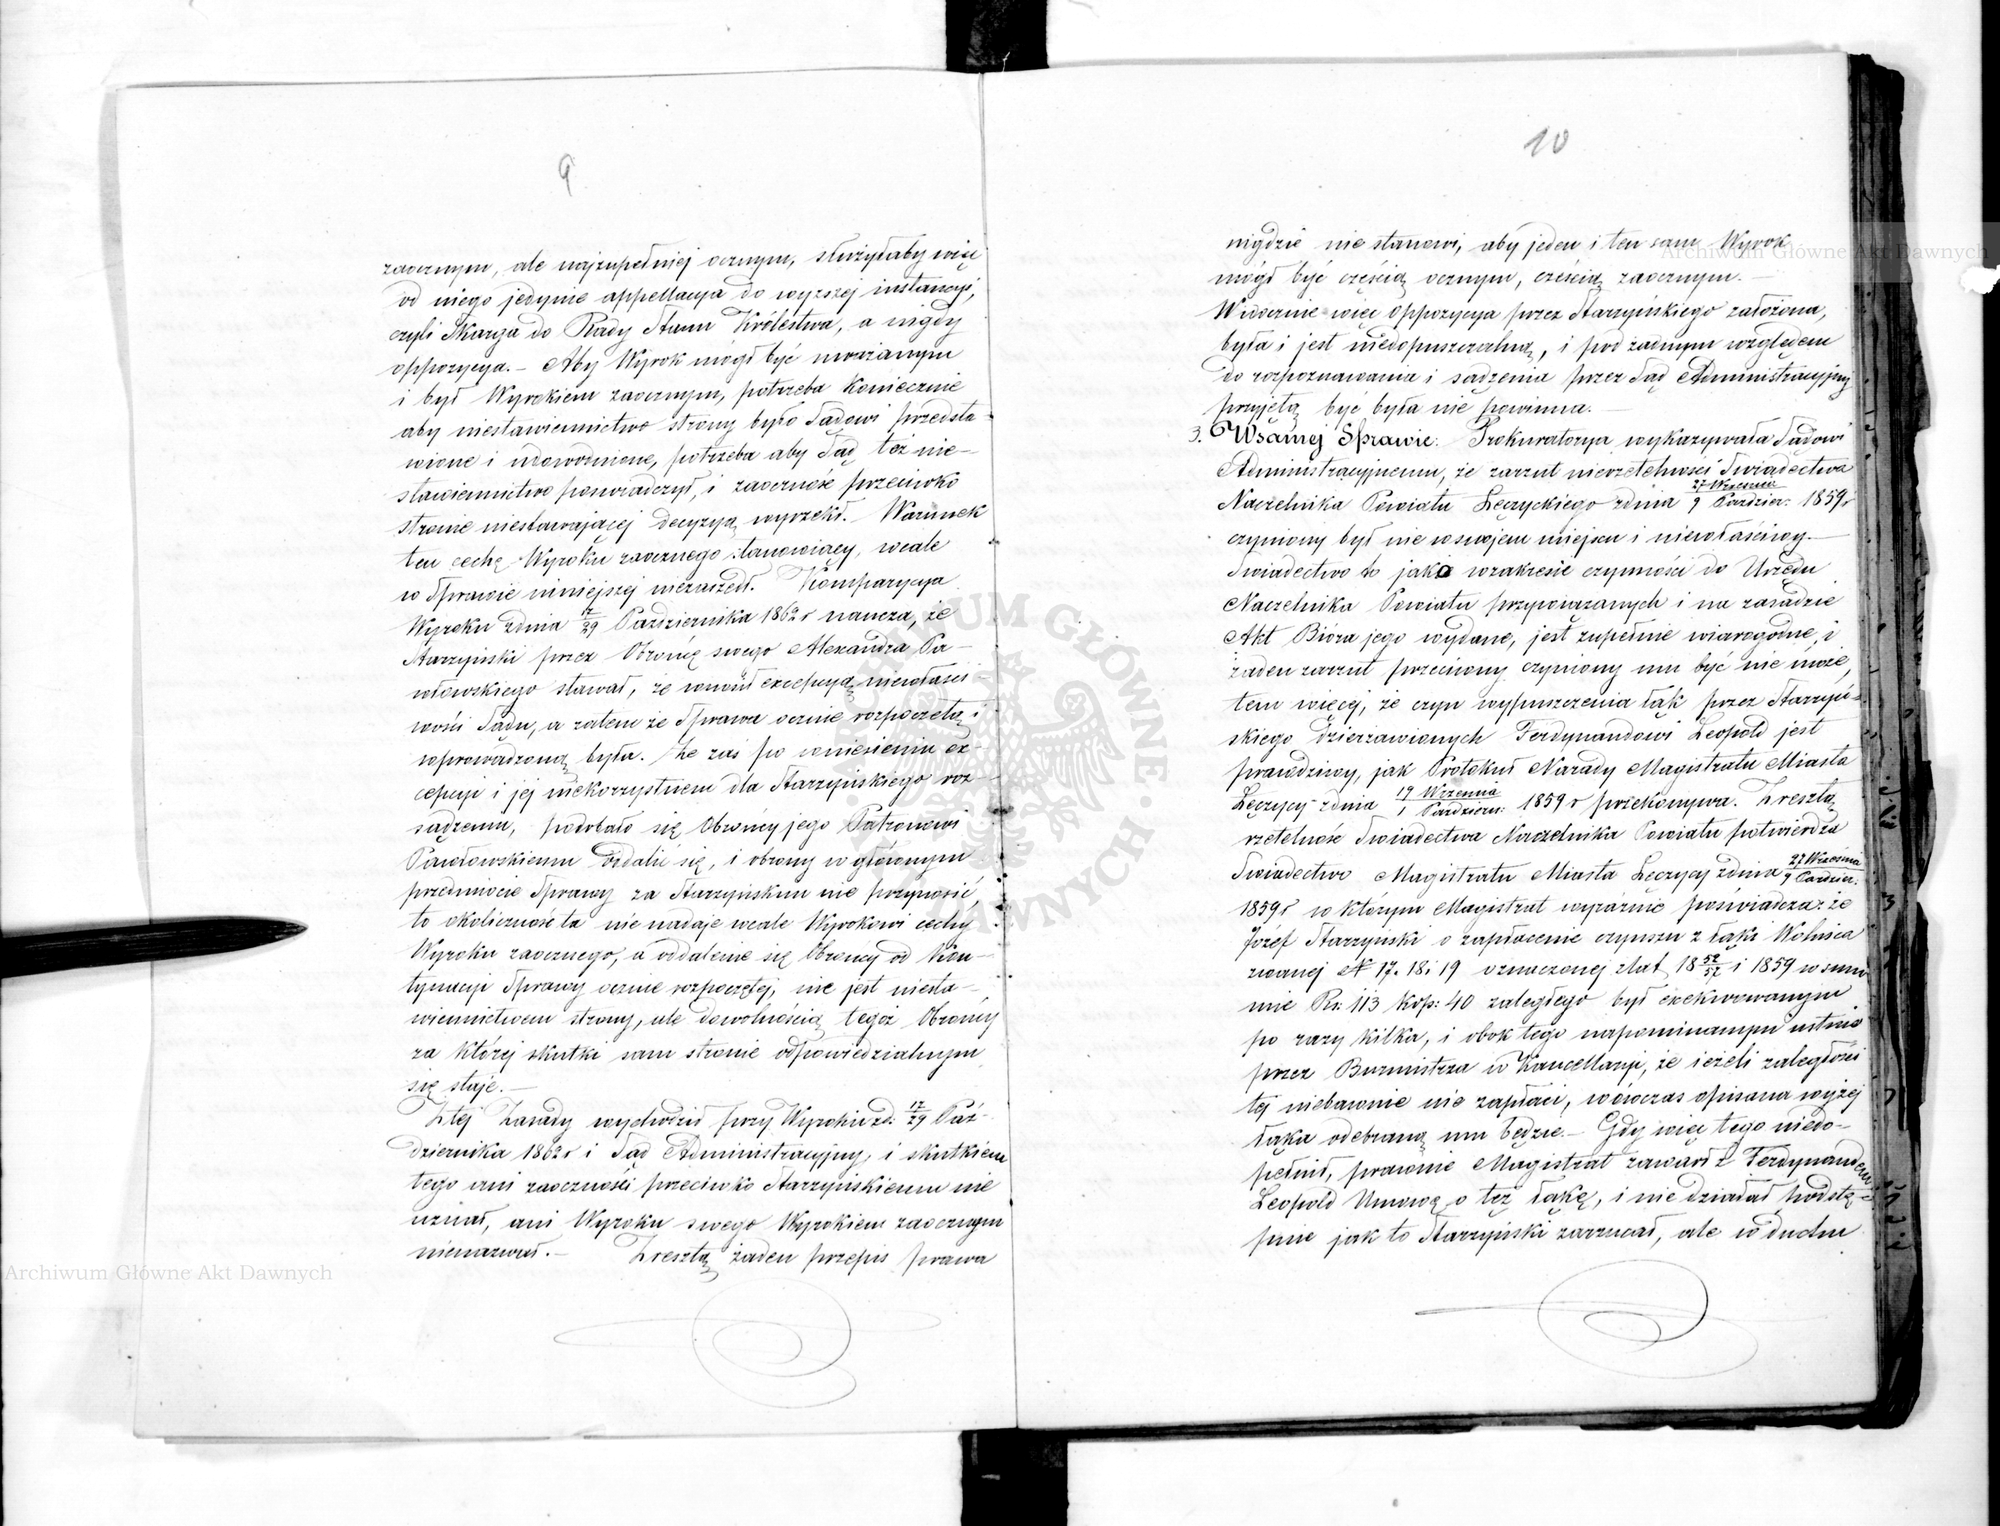 9
zaocznym, ale najzupełniej ocznym, służyłaby więc
od niego jedynie appellacya do wyższej instancyi,
czyli Skarga do Rady Stanu Królestwa, a nigdy
oppozycya. – Aby Wyrok mógł być uważanym
i był Wyrokiem zaocznym, potrzeba koniecznie
aby niestawiennictwo strony było Sądowi przedsta
wione i udowodnione, potrzeba aby Sąd toż nie-
stawiennictwo poswiadczył, i zaoczność przeciwko
stronie niestawającej decyzyą wyrzekł. – Warunek
ten cechę Wyroku zaocznego stanowiący, wcale
w Sprawie niniejszej niezaszedł. Komparycya
Wyroku zdnia 17/29 Października 1862 r naucza, że
Starzyński przez Obrońcę swego Alexandra Pa-
włowskiego stawał, że wniósł excepcyą niewłaści-
wości Sądu, a zatem że Sprawa ocznie rozpoczętą i
wprowadzoną była. Że zaś po wniesieniu ex-
cepcyi i jej niekorzystnem dla Starzyńskiego roz-
sądzeniu, podobało się Obrońcy jego Patronowi
Pawłowskiemu oddalić się, i obrony w głównym
przedmiocie Sprawy za Starzyńskim nie przynosić,
to okoliczność ta nie nadaje wcale Wyrokowi cechy
Wyroku zaocznego, a oddalenie się Obrońcy od kon-
tynuacyi Sprawy ocznie rozpoczętej, nie jest niesta-
wiennictwem strony, ale dowolnością tegoż Obrońcy
za której skutki sam stronie odpowiedzialnym
się staje. –
Z tej Zasady wychodził przy Wyroku zd: 17/29 Paź-
dziernika 1862 r i Sąd Administracyjny, i skutkiem
tego ani zaoczności przeciwko Starzyńskiemu nie
uznał, ani Wyroku swego Wyrokiem zaocznym
nienazwał. – Zresztą żaden przepis prawa
10
nigdzie nie stanowi, aby jeden i ten sam Wyrok
mógł być częścią ocznym, cześcią zaocznym. –
Widocznie więc oppozycya przez Starzyńskiego założona,
była i jest niedopuszczalną, i pod żadnym względem
do rozpoznawania i sądzenia przez Sąd Administracyjny
przyjętą być była nie powinna.
3. W samej Sprawie. Prokuratorya wykazywała Sądowi
Administracyjnemu, że zarzut nierzetelności Świadectwa
Naczelnika Powiatu Łęczyckiego zdnia 27 Września / 9 Paździer: 1859 r
czyniony był nie w swojem miejscu i niewłaściwy. –
Świadectwo to jako w zakresie czynności do Urzędu
Naczelnika Powiatu przywiązanych i na zasadzie
Akt Bióra jego wydane, jest zupełnie wiarogodne, i
żaden zarzut przeciwny czyniony mu być nie może,
tem więcej, że czyn wypuszczenia łąk przez Starzyń-
skiego dzierżawionych Ferdynandowi Leopold jest
prawdziwy, jak Protokuł Narady Magistratu Miasta
Łęczycy zdnia 19 Września / 1 Paździer: 1859 r przekonywa. Zresztą
rzetelność Świadectwa Naczelnika Powiatu potwierdza
Świadectwo Magistratu Miasta Łęczycy zdnia 27 Września / 9 Paździer:
1859 r w którym Magistrat wyraźnie poświadcza: że
Józef Starzyński o zapłacenie czynszu z łąki Wolnica
zwanej N 17. 18 i 19 oznaczonej z lat 18 i 1859 w sum
mie Rs: 113 kop: 40 zaległego był exekwowanym
po razy kilka, i obok tego napominanym ustnie
przez Burmistrza w Kancellaryi, że jeżeli zaległości
tej niebawnie nie zapłaci, wówczas opisana wyżej
łąka odebraną mu będzie. – Gdy więc tego niedo-
pełnił, prawnie Magistrat zawarł z Ferdynandem
Leopold Umowę o tęż łąkę, i nie działał podstę-
pnie jak to Starzyński zarzucał, ale w duchu
Archiwum Główne Akt Dawnych
Archiwum Główne Akt Dawnych
ARCHIWUM GŁÓWNE AKT DAWNYCH